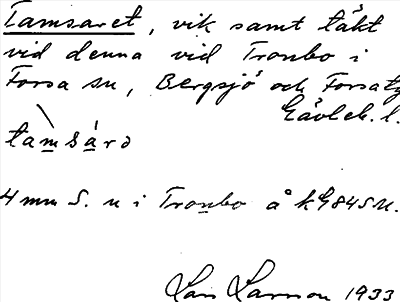 Tamsaret, vik samt täkt
vid denna vid Tronbo i
Forsa sn, Bergsjö och Forsa tg
Gävleb. l.
tamsárə
4 mm S. n i Tronbo å k G845M.
Lars Larsson 1933